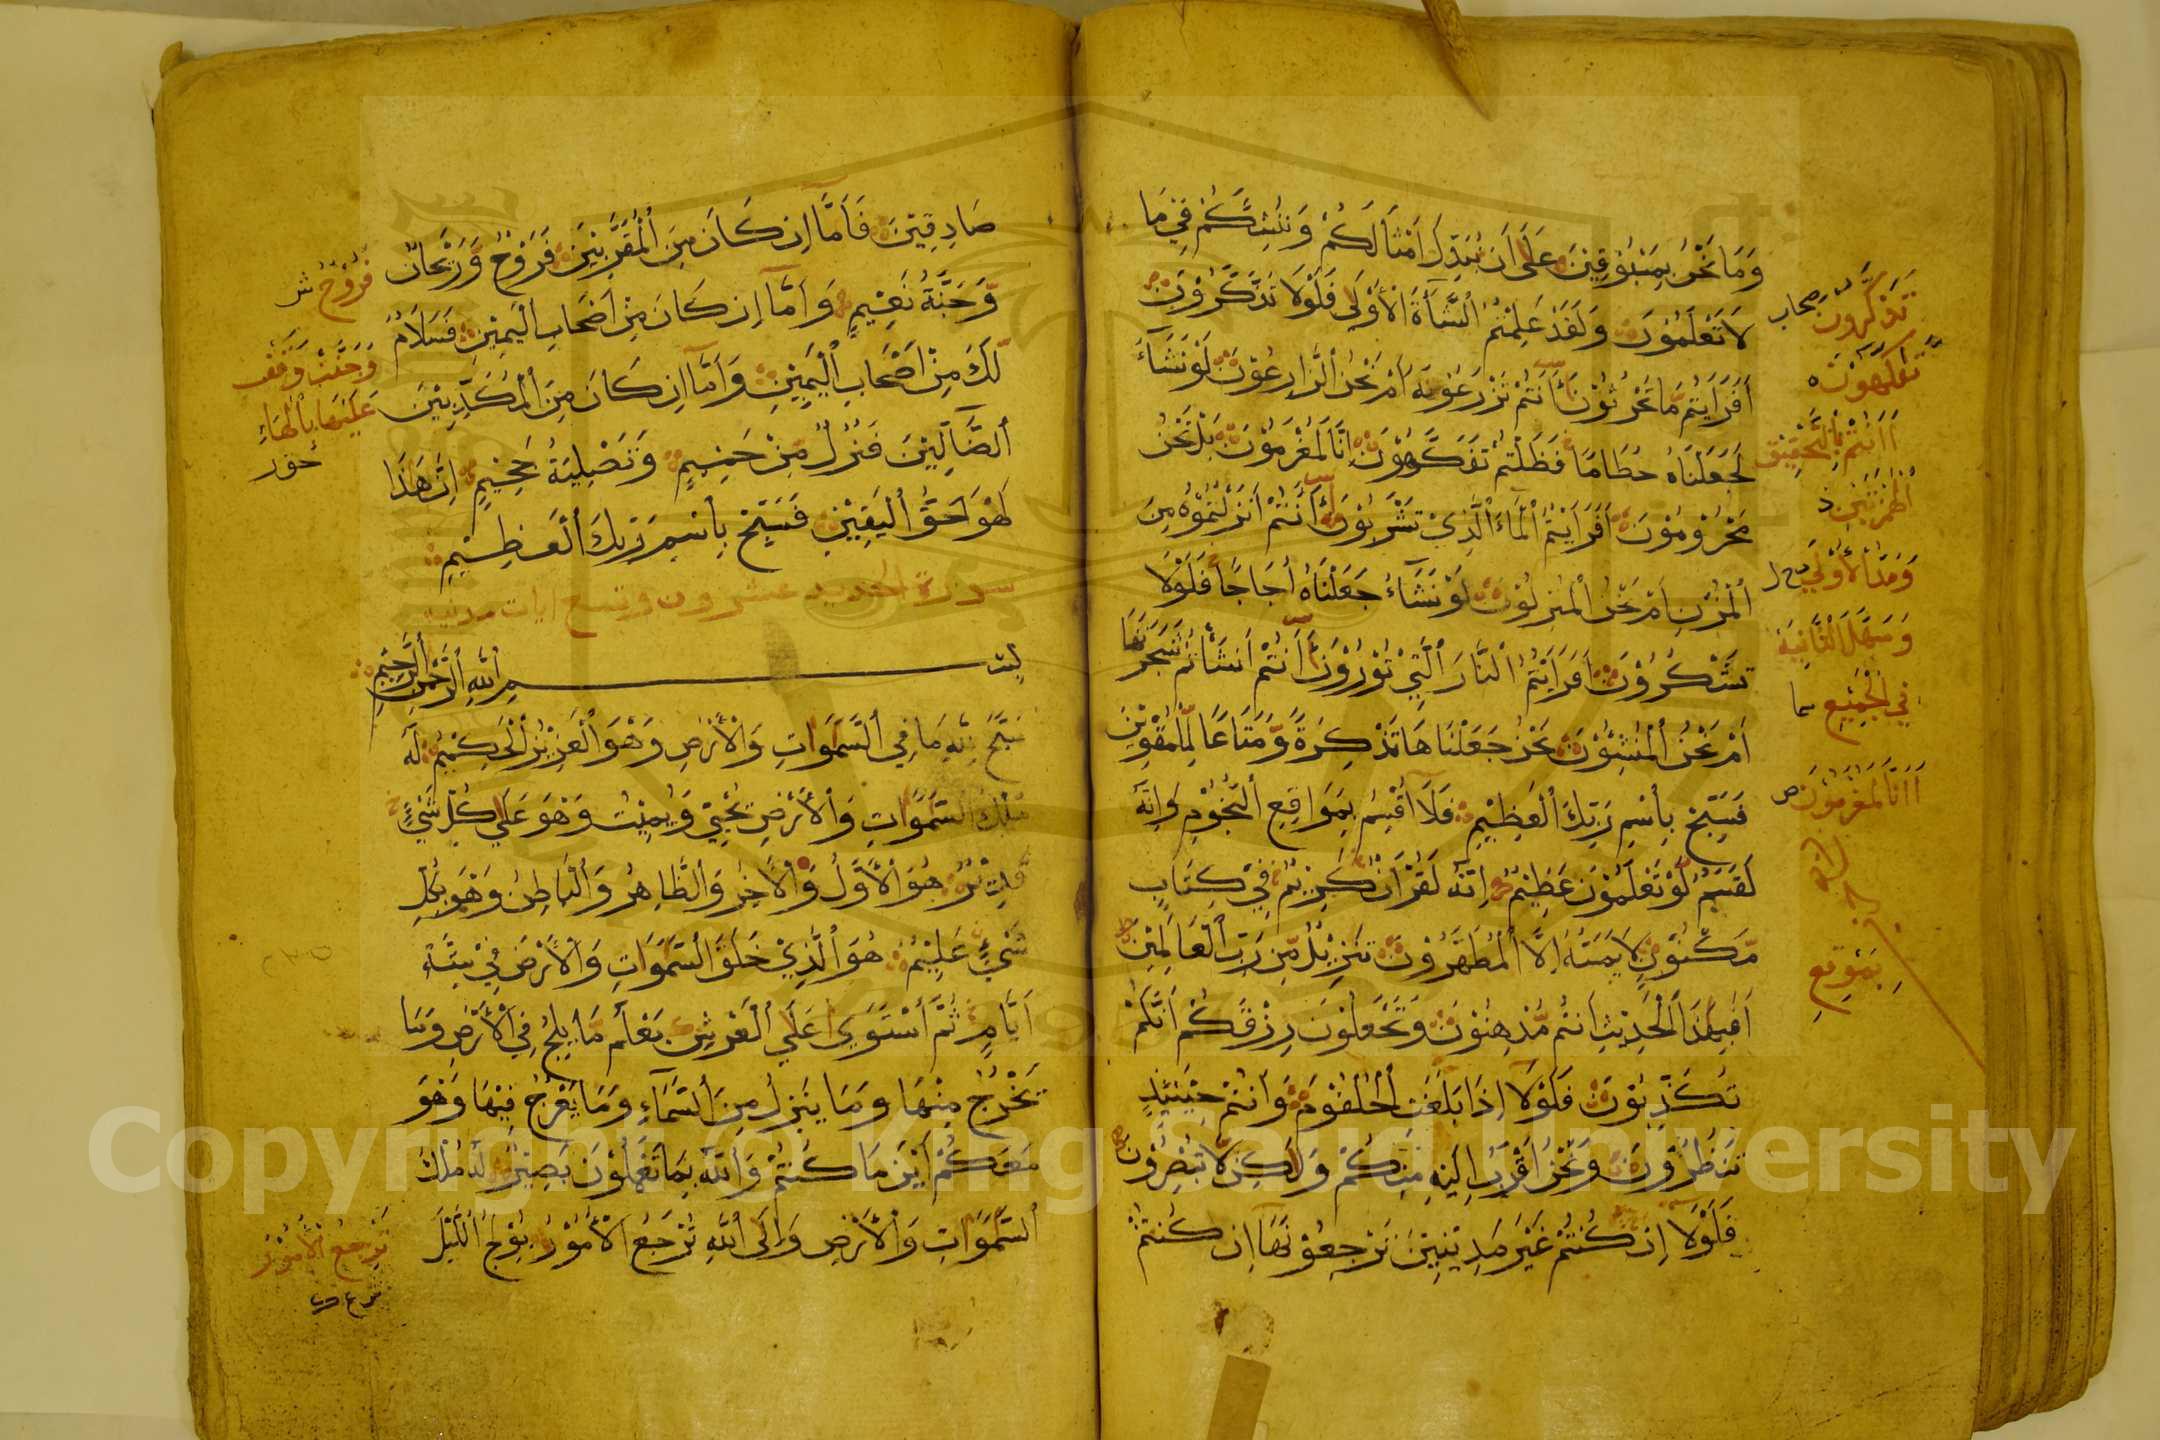 وَمَا نَحْنُ بِمَسْبُوقِينَ عَلَى أَن نُبَدِّلَ أَمْثَالَكُمْ وَنُنْشِئَكُمْ فِي مَا
لَا تَعْلَمُونَ وَلَقَدْ عَلِمْتُمُ النَّشْأَةَ الْأُولَى فَلَوْلَا تَذَّكَّرُونَ
أَفَرَأَيْتُم مَّا تَحْرُثُونَ أَأَنتُمْ تَزْرَعُونَهُ أَمْ نَحْنُ الزَّارِعُونَ لَوْ نَشَآءُ
لَجَعَلْنَاهُ حُطَامًا فَظَلْتُمْ تَفَكَّهُونَ إِنَّا لَمُغْرَمُونَ بَلْ نَحْنُ
مَحْرُومُونَ أَفَرَأَيْتُمُ الْمَاءَ الَّذِي تَشْرَبُونَ أَأَنتُمْ أَنزَلْتُمُوهُ مِنَ
الْمُزْنِ أَمْ نَحْنُ الْمُنزِلُونَ لَوْ نَشَآءُ جَعَلْنَاهُ أُجَاجًا فَلَوْلَا
تَشْكُرُونَ أَفَرَأَيْتُمُ النَّارَ الَّتِي تُورُونَ أَأَنتُمْ أَنشَأْتُمْ شَجَرَتَهَا
أَمْ نَحْنُ الْمُنشِئُونَ نَحْنُ جَعَلْنَاهَا تَذْكِرَةً وَّمَتَاعًا لِّلْمُقْوِينَ
فَسَبِّحْ بِاسْمِ رَبِّكَ الْعَظِيمِ فَلَا أُقْسِمُ بِمَوَاقِعِ النُّجُومِ وَإِنَّهُ
لَقَسَمٌ لَّوْ تَعْلَمُونَ عَظِيمٌ إِنَّهُ لَقُرْآنٌ كَرِيمٌ فِي كِتَابٍ
مَّكْنُونٍ لَا يَمَسُّهُ إِلَّا الْمُطَهَّرُونَ تَنزِيلٌ مِّن رَّبِّ الْعَالَمِينَ
أَفَبِهَذَا الْحَدِيثِ أَنتُم مُّدْهِنُونَ وَتَجْعَلُونَ رِزْقَكُمْ أَنَّكُمْ
تُكَذِّبُونَ فَلَوْلَا إِذَا بَلَغَتِ الْحُلْقُومَ وَأَنتُمْ حِينَئِذٍ
تَنظُرُونَ وَنَحْنُ أَقْرَبُ إِلَيْهِ مِنكُمْ وَلَكِن لَّا تُبْصِرُونَ
فَلَوْلَا إِن كُنتُمْ غَيْرَ مَدِينِينَ تَرْجِعُونَهَا إِن كُنتُمْ
تَذَّكَّرُونَ صحاب
تَّفَكَّهُونَ ه
أَأَنتُمْ بِالتَّحْقِيقِ
الْهَمْزَتَيْنِ ذ
وَمَدَّ الْأُولَى
وَسَهَّلَ الثَّانِيَةَ
فِي الْجَمِيعِ سما
أَإِنَّا لَمُغْرَمُونَ ص
بِمَوْقِعِ
صَادِقِينَ فَأَمَّا إِن كَانَ مِنَ الْمُقَرَّبِينَ فَرَوْحٌ وَّرَيْحَانٌ
وَّجَنَّةُ نَعِيمٍ وَأَمَّا إِن كَانَ مِنْ أَصْحَابِ الْيَمِينِ فَسَلَامٌ
لَّكَ مِنْ أَصْحَابِ الْيَمِينِ وَأَمَّا إِن كَانَ مِنَ الْمُكَذِّبِينَ
الضَّالِّينَ فَنُزُلٌ مِّنْ حَمِيمٍ وَتَصْلِيَةُ جَحِيمٍ إِنَّ هَذَا
لَهْوَ حَقُّ الْيَقِينِ فَسَبِّحْ بِاسْمِ رَبِّكَ الْعَظِيمِ
سورة الحديد عشرون وتسع ايات مدنية
بِسْمِ اللَّهِ الرَّحْمَنِ الرَّحِيمِ
سَبَّحَ لِلَّهِ مَا فِي السَّمَوَاتِ وَالْأَرْضِ وَهْوَ الْعَزِيزُ الْحَكِيمُ لَهُ
مُلْكُ السَّمَوَاتِ وَالْأَرْضِ يُحْيِي وَيُمِيتُ وَهْوَ عَلَى كُلِّ شَيْءٍ
قَدِيرٌ هُوَ الْأَوَّلُ وَالْآخِرُ وَالظَّاهِرُ وَالْبَاطِنُ وَهْوَ بِكُلِّ
شَيْءٍ عَلِيمٌ هُوَ الَّذِي خَلَقَ السَّمَوَاتِ وَالْأَرْضَ فِي سِتَّةِ
أَيَّامٍ ثُمَّ اسْتَوَى عَلَى الْعَرْشِ يَعْلَمُ مَا يَلِجُ فِي الْأَرْضِ وَمَا
يَخْرُجُ مِنْهَا وَمَا يَنزِلُ مِنَ السَّمَآءِ وَمَا يَعْرُجُ فِيهَا وَهْوَ
مَعَكُمْ أَيْنَ مَا كُنتُمْ وَاللَّهُ بِمَا تَعْمَلُونَ بَصِيرٌ لَهُ مُلْكُ
السَّمَوَاتِ وَالْأَرْضِ وَإِلَى اللَّهِ تُرْجَعُ الْأُمُورُ يُولِجُ اللَّيْلَ
فَرُوحٌ
وَجَنَّتْ وَقَفَ
عَلَيْهَا بِالْهَاءِ
حق ر
تَرْجِعُ الْأُمُورُ
Copyright © King Saud University